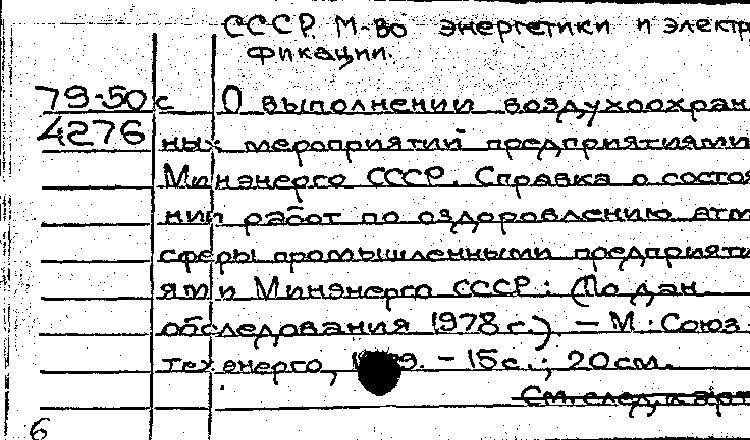 СССР. М-во энергетики и электр
фикации.
79-50с О выполнении воздухоохран
4276 ных мероприятий предприятиями
Минэнерго СССР. Справка о состоя
нии работ по оздоровлению атм
сферы промышленными предприяти
ями Минэнерго СССР: (По дан
обследования 1978 г.). – М.: Союз
техэнерго, 1979. – 15 с.; 20 см.
См. след. карт
6